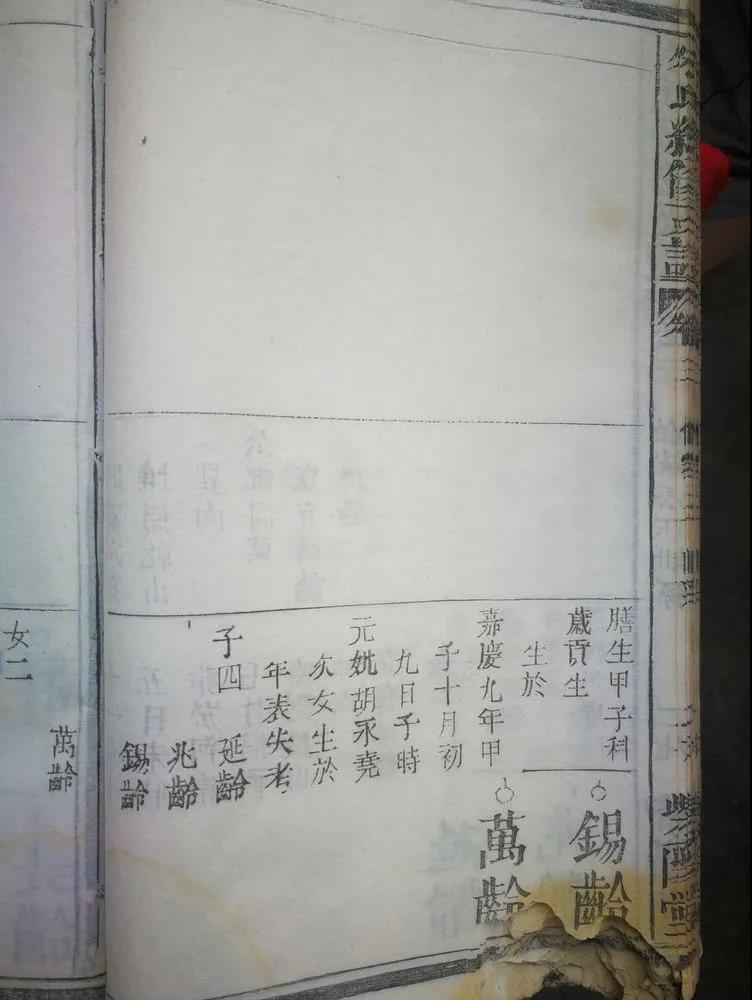 紫陽堂
膳生甲子科
歲貢生
生於
嘉慶九年甲
子十月初
九日子時
元妣胡永堯
次女生於
年表失考
子四 延齡
兆齡
錫齡
錫齡
萬齡
萬齡
女二